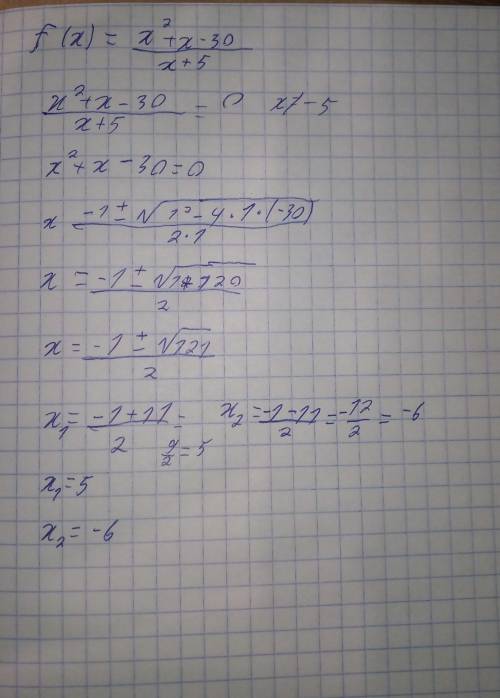 f(x) = x²+x-30 / x+5
x²+x-30 / x+5 = 0 x≠-5
x²+x-30=0
x -1±√1²-4·1·(-30) / 2·1
x = -1±√1+120 / 2
x = -1±√121 / 2
x₁= -1+11 / 2 = /2 = 5 x₂ = -1-11 / 2 = -12 / 2 = -6
x₁=5
x₂=-6